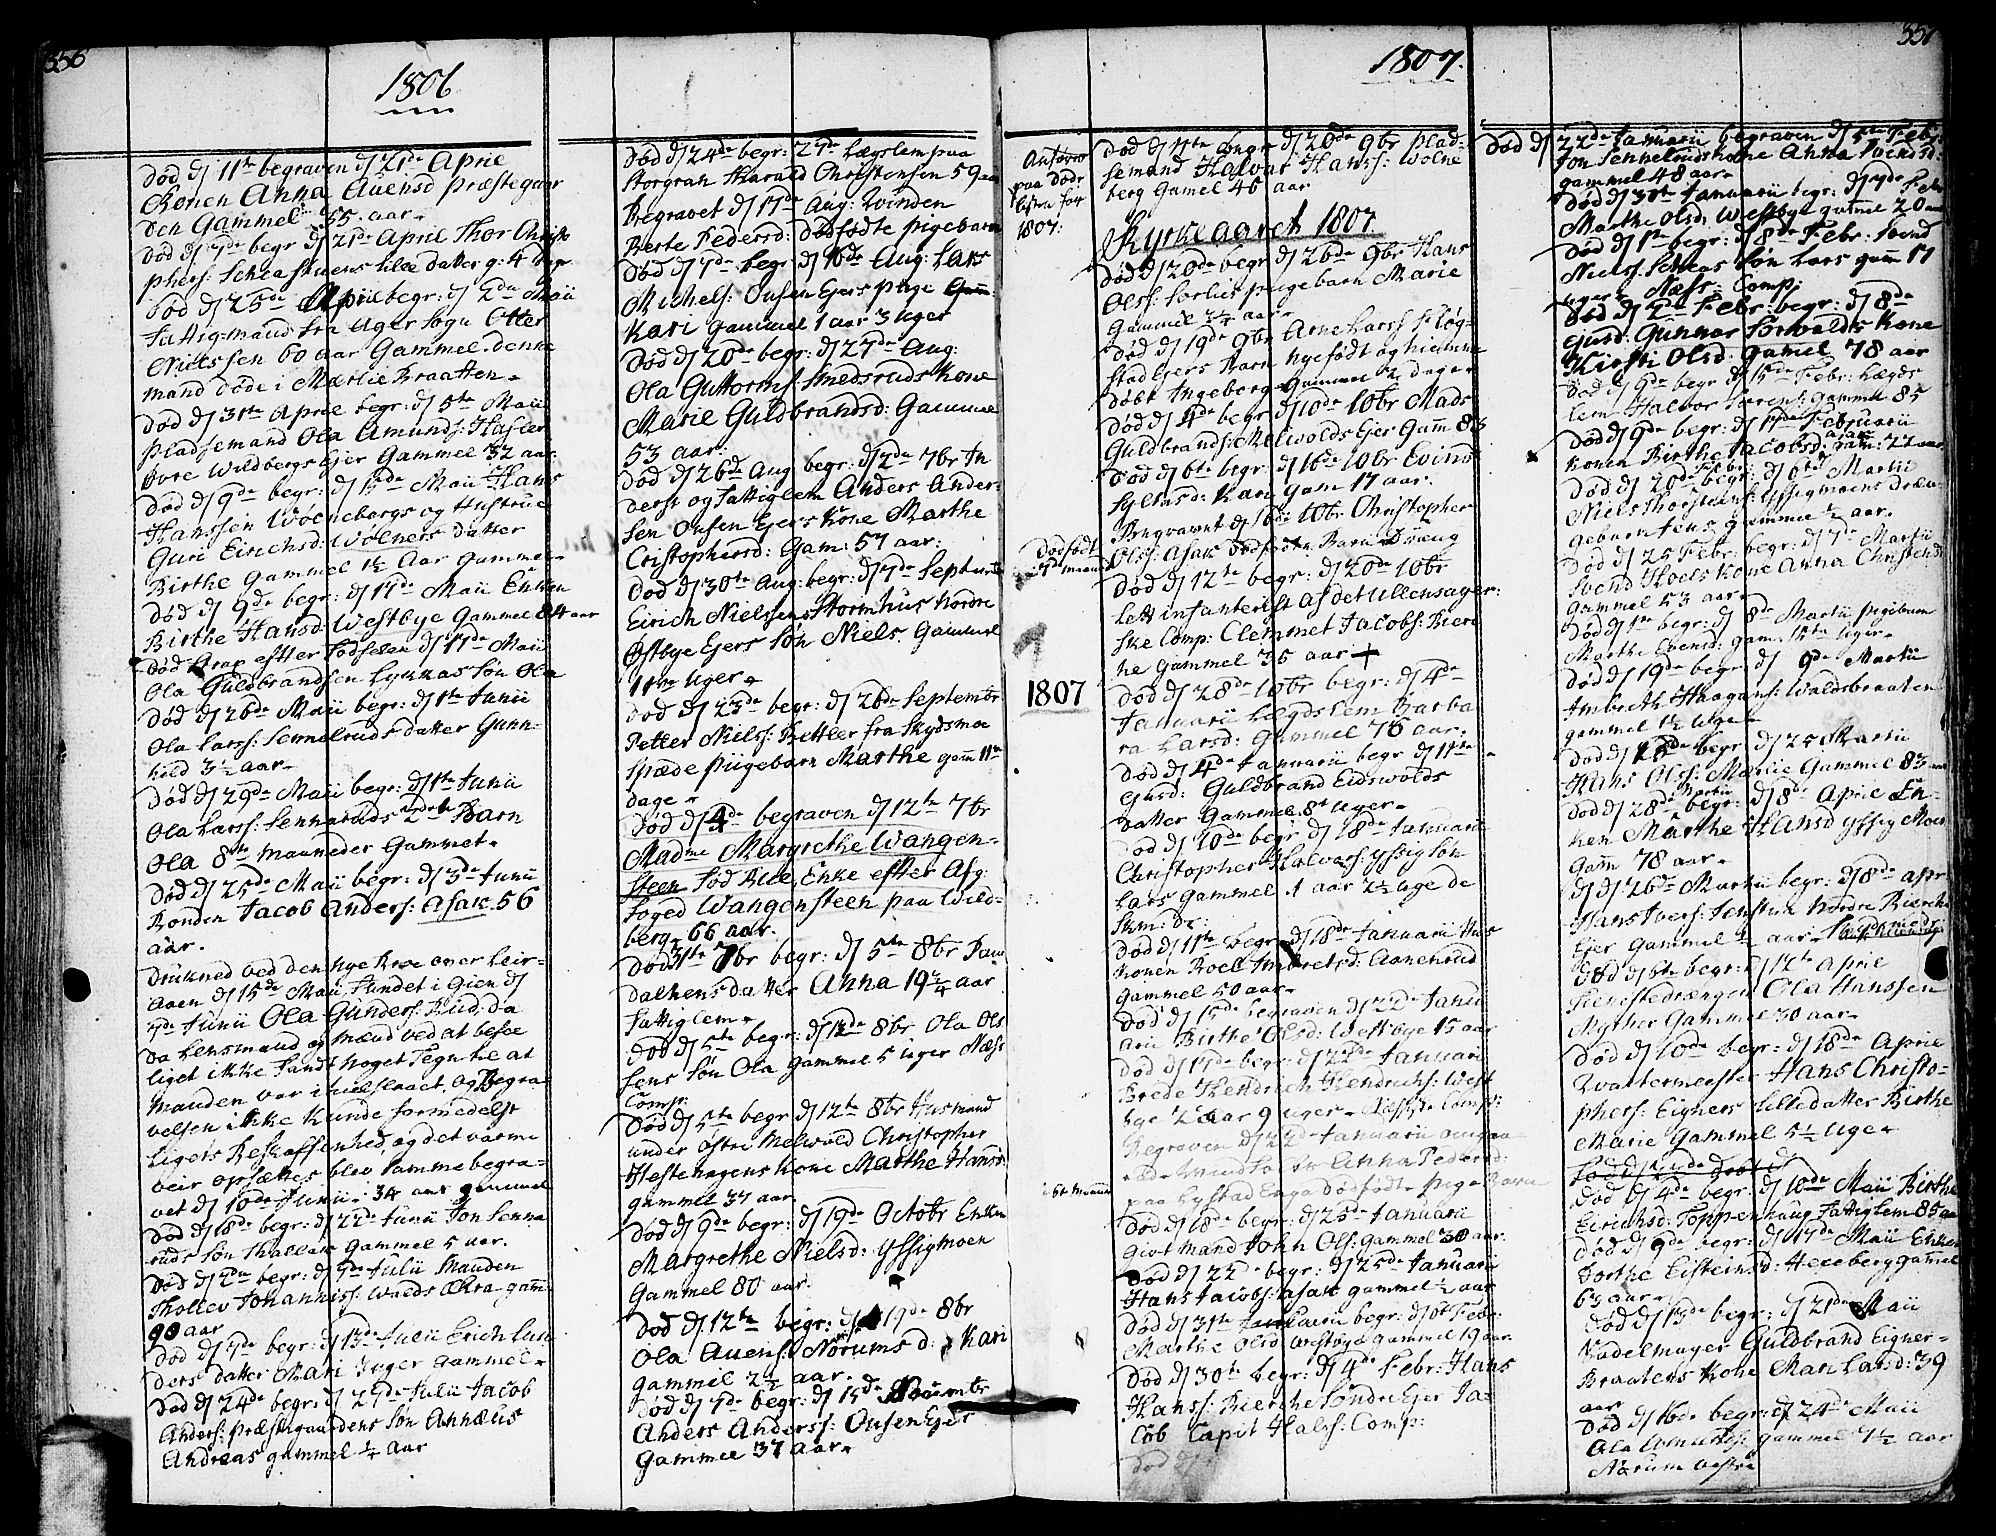 356
1806
Død d 11te begraven d 21de April
Konen Anna Auensd Præstegaar
den Gammel 55 aar
Død d 7de begr d 21de April Thor Christo
phers: Schiastuens lille datter g: 4 Uger
Død d 25de Aprilii begr: d 2den Maii
Fattigmand fra Uger Sogn Otter
Nielssen 60 aar Gammel. denne
mand døde i Mærlie Braatten
Død d 31te April begr: d 5te Maii
Pladsemand Ola Amunds: Hasler
Øvre Wildbergs Ejer Gammel 32 aar
Død d 9de begr: d 17de Maii Hans
Hanssen Woenebergs og Hustrue
Guri Eirichsd: Wølners datter
Birthe Gammel 1½ Aar Gammel
Død d 9de begr: d 17de Maii Enken
Birthe Hansd: Westbye Gammel 84 aar
Død strax efter Fødselen d 17de Maii
Ola Guldbrandsen Lykkas Søn Ola
Død d 26de Maii begr: d 1te Junii
Ola Larss: Sennerruds datter Gunn-
hild 3½ aar
Død d 29de Maii begr: d 1te Junii
Ola Larss: Senneruds 2det Barn
Ola 8te Maaneder Gammel
Død d 25de Maii begr: d 3de Junii
Bonden Jacob Anders: Asak 56
aar.
Druknед ved den nye Broe over Leir-
aaen d 15de Maii Fundet i Gien d
7de Junii Ola Gunders: Rud: da
da Lensmand og mænd ved at besee
liget ikke fandt noget Tegn til at
Manden var ihielslaaet, og Begra-
velsen ikke kunde formedelst
Ligets Beskaffenhed, og det varme
veir opsættes blev samme begra-
vet d 10de Junii 34 aar gammel
Død d 18de begr: d 22de Junii Jon Senne
ruds Søn Hallak Gammel 5 aar.
Død d 2den begr: d 7de Julii Manden
Thollev Johannss: Walds Øra gaml
90 aar
Død d 7de begr: d 13de Julii Erich Lun
ders datter Mari 3 uger gammel
Død d 24de begr: d 27de Julii Jacob
Anders: præstegaardens Søn Annæus
Andreas gammel ¼ aar
Død d 24de begr: 27de Lægslem paa
Storgran Harald Christensen 59 aar
Begravet d 17de Aug: Qvinden
Berte Pedersd: dødfødte pigebarn
Død d 7de begr d 10de Aug: Lars
Michels: Ousen Ejers pige Gam:
Kari gammel 1 aar 3 uger
Død d 20de begr: d 27de Aug:
Ola Guttorms: Smedsruds Kone
Marie Guldbrandsd: Gammel
53 aar
Død d 26d Aug begr: d 2de 7br In
derst og Fattiglem Anders Ander-
sen Ousen Ejers Kone Marthe
Cristophersd: Gam: 57 aar:
Død d 30te Aug: begr: d 7de Septembr
Eirich Nielsen Stormhus Nordre
Østbye Ejers Søn Niels Gammel
11ve Uger
Død d 23de begr: d 26de Septembr
Petter Niels: Bettler fra Skydsmoe
Spæde Pigebarn Marthe gam 11te
dage
Død d 4de begraven d 12te 7br
Madme Margrethe Wangen-
steen Fød Bull, Enke efter Afg:
Foged Wangensteen paa Wild-
berg 66 aar.
Død 31te 7br begr: d 5te 8br Pau
dalkens datter Anna 19¼ aar
Fattiglem
Død d 5te begr: d 12de 8br Ola Ols
sens Søn Ola gammel 5 Uger Næss
Comp:
Død d 5te begr d 12te 8br Husmand
under Østre Melwold Christopher
Hestehagens Kone Marthe Hansd:
gammel 37 aar
Død d 9de begr: d 19de Octobr Enken
Margrethe Nielsd: Yssigmoen
Gammel 80 aar.
Død d 12te begr: d 19de 8br
Ola Auens: Norums d: Kari
gammel 2½ aar.
Død d 7de begr: d 15de Novembr
Anders Anderss: Ousen Ejer
Gammel 37 aar
357
1807.
Anføres
paa Døde
listen for
1807:
Dødfødt
7de Maaned
1807
Død d 11te begr d 20de 9br plad-
semand Halvor Hanss: Wolne
berg Gamel 46 aar
Kyrkeaaret 1807
Død d 20de begr d 26de 9br Hans
Olss: Sorlies pigebarn Marie
Gammel ¾ aar
Død d 19de 9br Arne Larss Fløg-
stad Ejers Barn nye født og hiemme
døbt Ingeborg Gammel 2 dager
Død d 4de begr d 10de 10br Mads
Guldbrands: Melwolds Ejer Gam 83
Død d 6te begr: d 16de 10br Evind
Fyltasd: Kari Gam 17 aar.
Begravet d 16de 10br Christopher
Olss: Asak Dødfødte Barn Dræng
Død d 12te begr: d 20de 10br
Lett infanterist af det Ullensager-
ske Comp: Clemmet Jacobs: Bier
ke Gammel 35 aar +
Død d 28de 10br begr: d 4de
Januarii Lægdslem Barba
ra Larsd: Gammel 76 aar.
Død d 4de Januarii begr d 11te
Gusd: Guldbrand Eidswolds
datter Gammel 8t Uger
Død d 10de begr d 18de Januarii
Christopher Halvors: Yssig Søn
Lars Gammel 1 aar 2½ Uge de
Skm: Dr:
Død d 11te begr d 18de Januarii Hus
Konen Roel Imbretsd: Aanerud
gammel 50 aar
Død d 15de begraven d 22de Janua
arii Birthe Olsd: Westbye 15 aar
Død d 17de begr: d 22de Januarii
Brede Hendrich Hendrichs: West
bye 2 aar 9 uger
Begraven d 22de Januarii
Anna Pedersd:
paa Lystad Enga Dødfødt Pige Barn
Død d 18de begr: d 25de Januarii
Givt Mand John Ols: gammel 30 aar:
Død d 22de begr: d 25de Januarii
Hans Jacobs: Asak gammel ½ aar
Død d 31te begr: d 8t Febr:
Marthe Olsd Westbye gammel 19 aar
Død d 30te begr: d 4de Febr: Hans
Hanss: Bierche Søndre Ejer Ja-
cob Capit Halss: Comp:
Død d 22de Januarii begraven d 5te Febr
Jon Sennerudskone Anna Svendsd:
gammel 48 aar
Død d 31te Januarii begr: d 7de Feb
Marthe Olsd: Westbye gammel 20 aar
Død d 1te begr: d 8de Febr: Svend
Nielss: Schias Søn Lars gam 17
Uger. Næss: Comp:
Død d 2de Febr: begr: d 8de
Ejusd: Gunnar Torwalds Kone
Kirsti Olsd: gamel 78 aar
Død d 9de begr d 15de Febr: Lægds
lem Halvor Sørens: gammel 85
Død d 9de begr: d 17de Februarii
Konen Birthe Jacobsd: Asak gam: 72 aar
Død d 20de Febr: begr: d 6te Martii
Niels Thorstens: Yssigmoens Dræn-
gebarn Jens gammel ½ aar.
Død d 25 Febr: begr: d 7de Martii
Svend Hoels Kone Anna Christensd
gammel 53 aar
Død d 1te begr: d 8de Martii pigebarn
Marthe Evensd: gam: 15te uger
Død d 19de begr: d 9de Martii
Imbreth Haagens: Waldsbraaten
gammel 1½ Uge
Død d 18de begr d 25 Martii
Hans Olss: Mærlie Gammel 83 aar
Død d 28de Martii begr: d 8de April En-
ken Marthe Hansd Yssig Moen
Gam 78 aar
d d 26de Martii begr: d 8de apr
Hans Ivers: Jenstun Nordre Bierche
Ejer Gammel ½ aar
Død d 6te begr: d 12te April
Tienistedrængen Ola Hanssen
Myther Gammel 30 aar
Død d 10de begr: d 18de April
Qvartermester Hans Christo-
phers: Eigners lille datter Birthe
Marie Gammel 5½ Uge
Død d 4de begr: d 10de Maii Birthe
Eirichsd: Toppenhaug Fattiglem 85 aar
Død d 9de begr: d 17de Maii Enken
Dorthe Eisteinsd: Helleberg gammel
63 aar
Død d 15de begr: d 21de Maii
Sadelmager Guldbrand Eigner-
Braatens Kone Mari Larsd: 39
aar
Død d 16de begr: d 24de Maii
Ola Amunds: gammel 7½ aar
Norum Westre